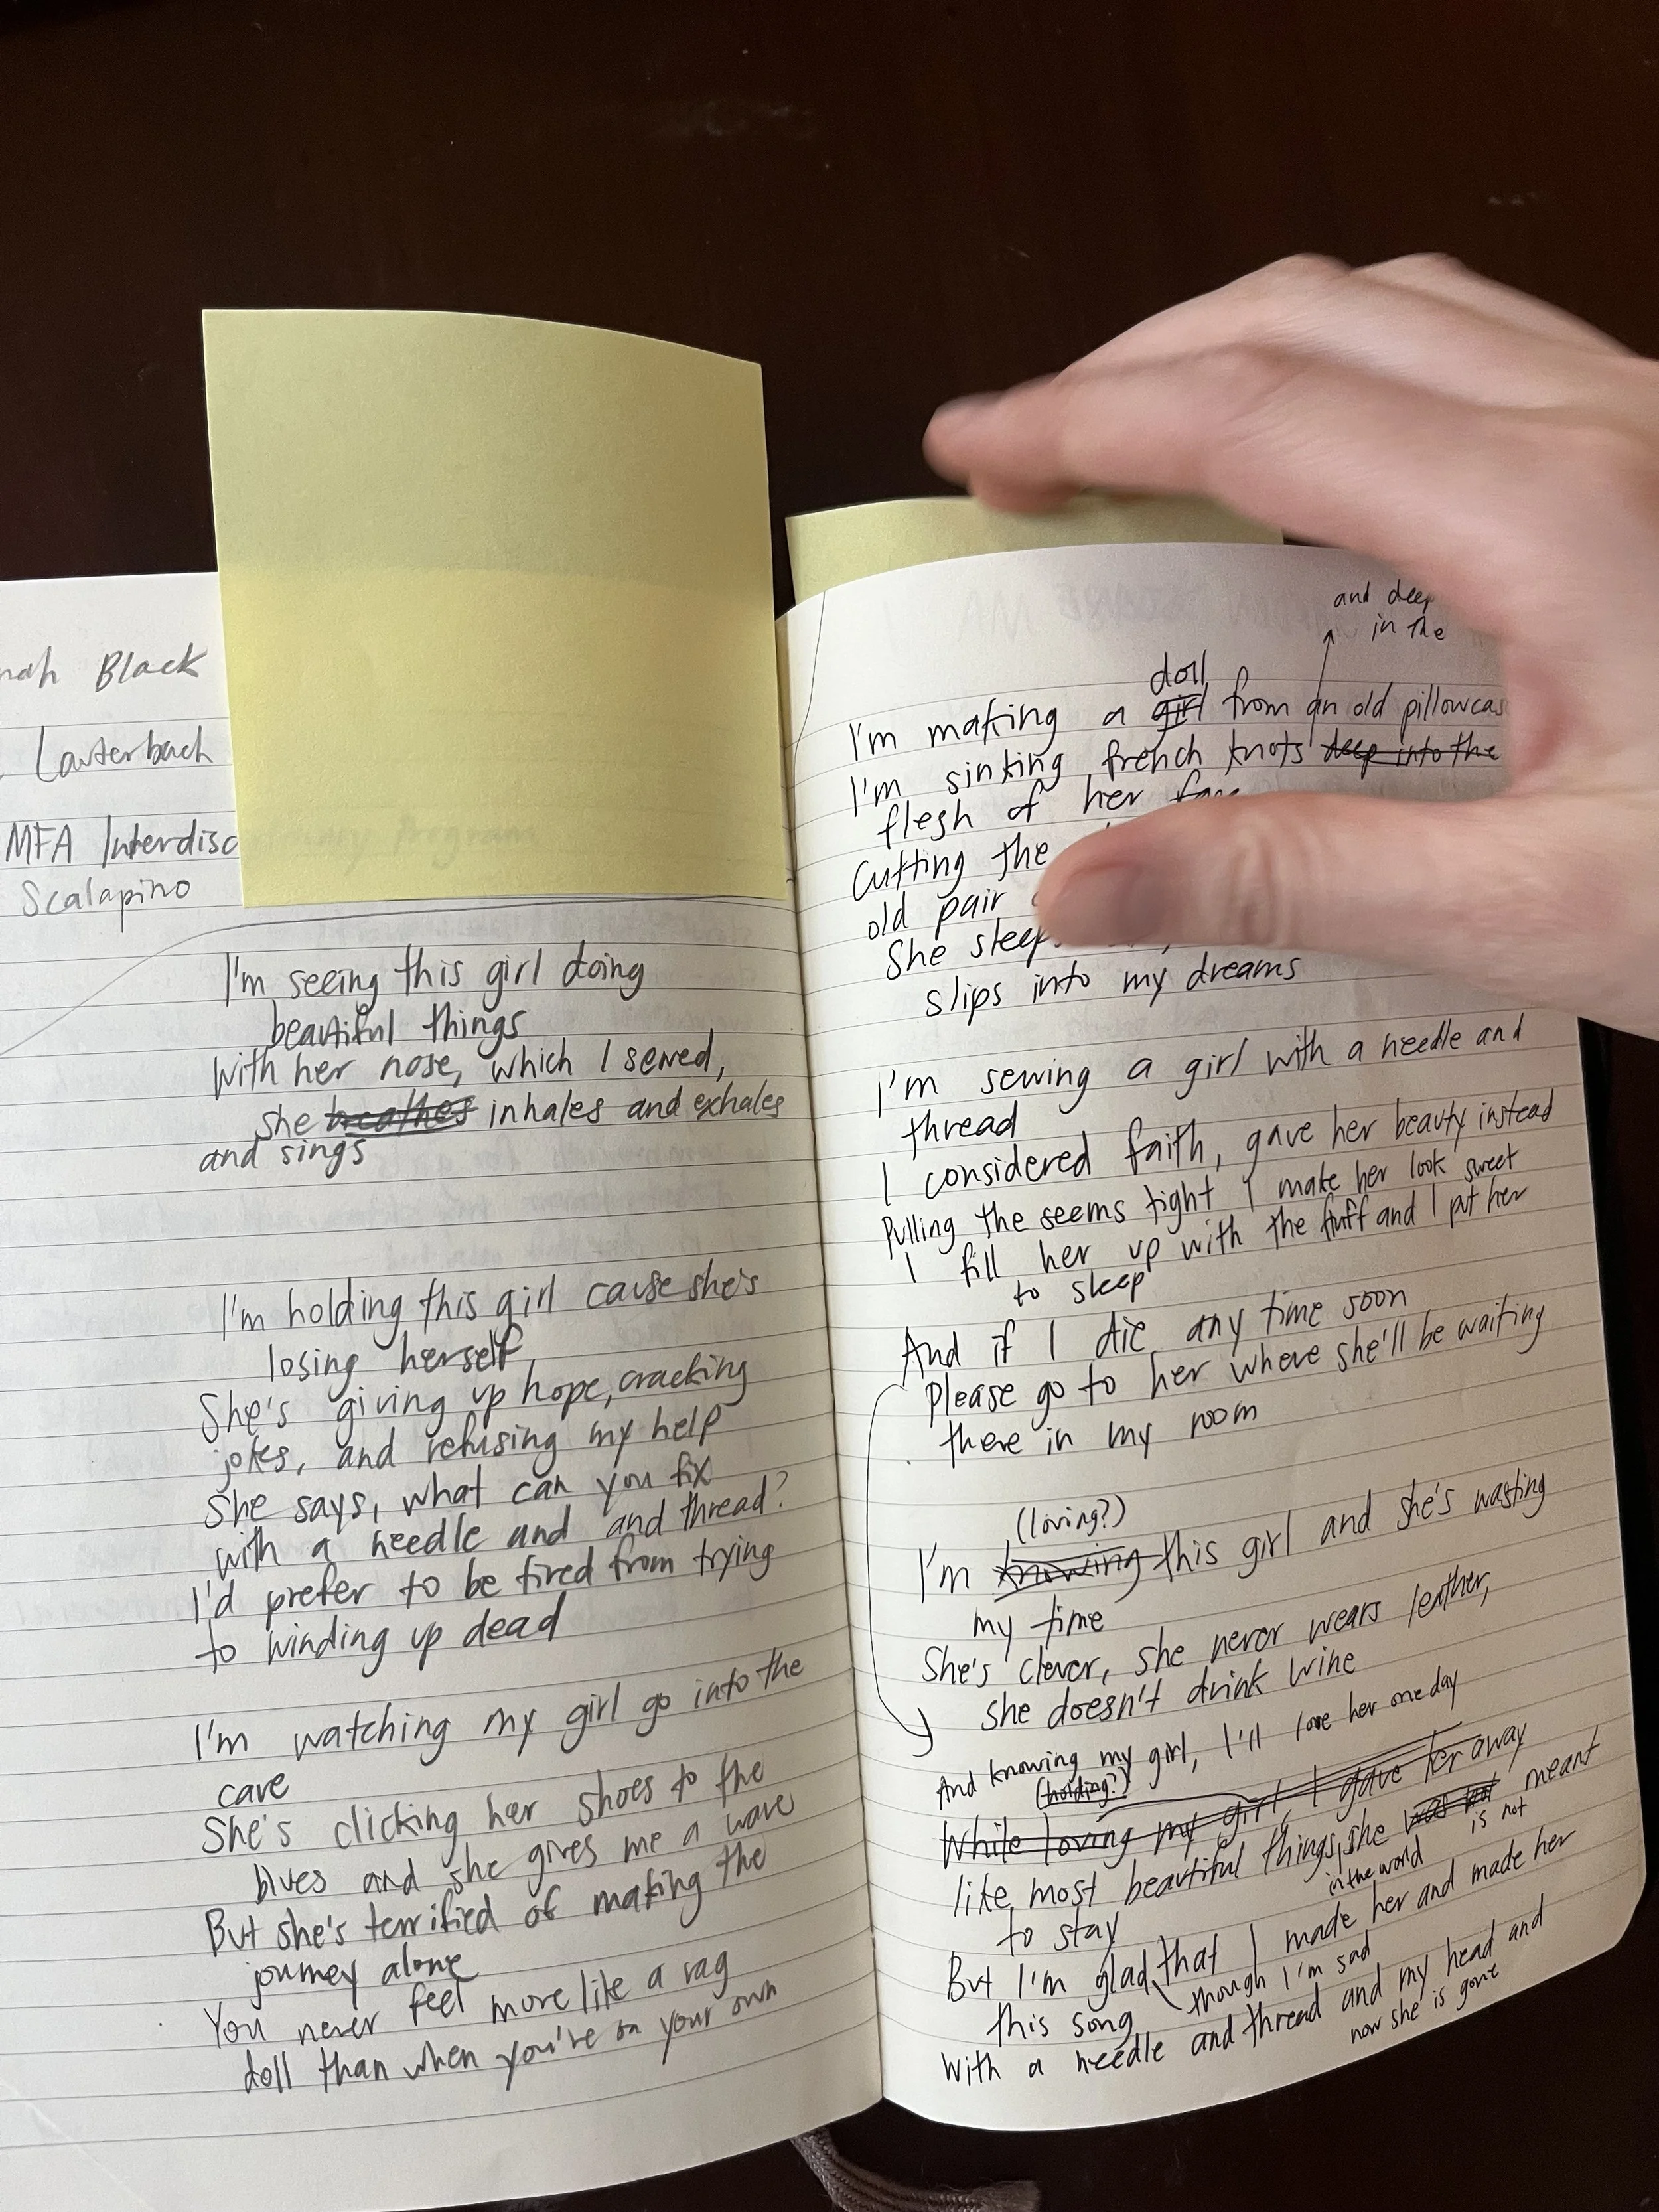 Black
Lauterbach
MFA Interdisc
Scalapino
I'm seeing this girl doing
beautiful things
With her nose, which I sewed,
she breathes inhales and exhales
and sings
I'm holding this girl cause she's
losing herself
She's giving up hope, cracking
jokes, and refusing my help
She says, what can you fix
with a needle and and thread?
I'd prefer to be tired from trying
to winding up dead
I'm watching my girl go into the
cave
She's clicking her shoes to the
blues and she gives me a wave
But she's terrified of making the
journey alone
You never feel more like a rag
doll than when you're on your own
and deep
in the
doll
I'm making a girl from an old pillowcas
I'm sinking french knots deep into the
flesh of her face
Cutting the
old pair
She sleeps
slips into my dreams
I'm sewing a girl with a needle and
thread
I considered faith, gave her beauty instead
Pulling the seems tight I make her look sweet
I fill her up with the fluff and I put her
to sleep
And if I die any time soon
Please go to her where she'll be waiting
there in my room
(loving?)
I'm knowing this girl and she's wasting
my time
She's clever, she never wears leather,
she doesn't drink wine
And knowing my girl, I'll love her one day
(holding?)
While loving my girl I gave her away
like most beautiful things, she was not meant
in the world
is not
to stay
But I'm glad that I made her and made her
though I'm sad
this song
With a needle and thread and my head and
now she is gone